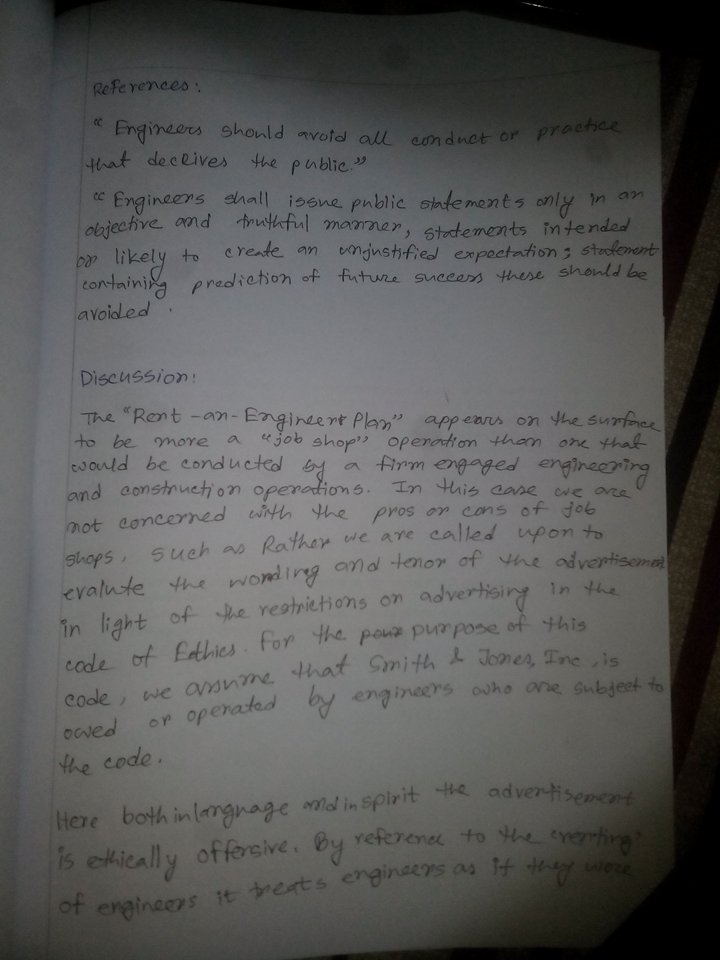 References:
“ Engineers should avoid all conduct or practice
that deceives the public.”
“ Engineers shall issue public statements only in an
objective and truthful manner, statements intended
or likely to create an unjustified expectation; statement
containing prediction of future success these should be
avoided.
Discussion:
The “Rent-an-Engineer Plan” appears on the surface
to be more a “job shop” operation than one that
would be conducted by a firm engaged engineering
and construction operations. In this case we are
not concerned with the pros or cons of job
shops, such as Rather we are called upon to
evalute the wording and tenor of the advertisement
in light of the restrictions on advertising in the
code of Eethics. For the purpose of this
code, we assume that Smith & Jones, Inc, is
owed or operated by engineers who are subject to
the code.
Here both in language and in spirit the advertisement
is ethically offensive. By reference to the ‘renting’
of engineers it treats engineers as if they were